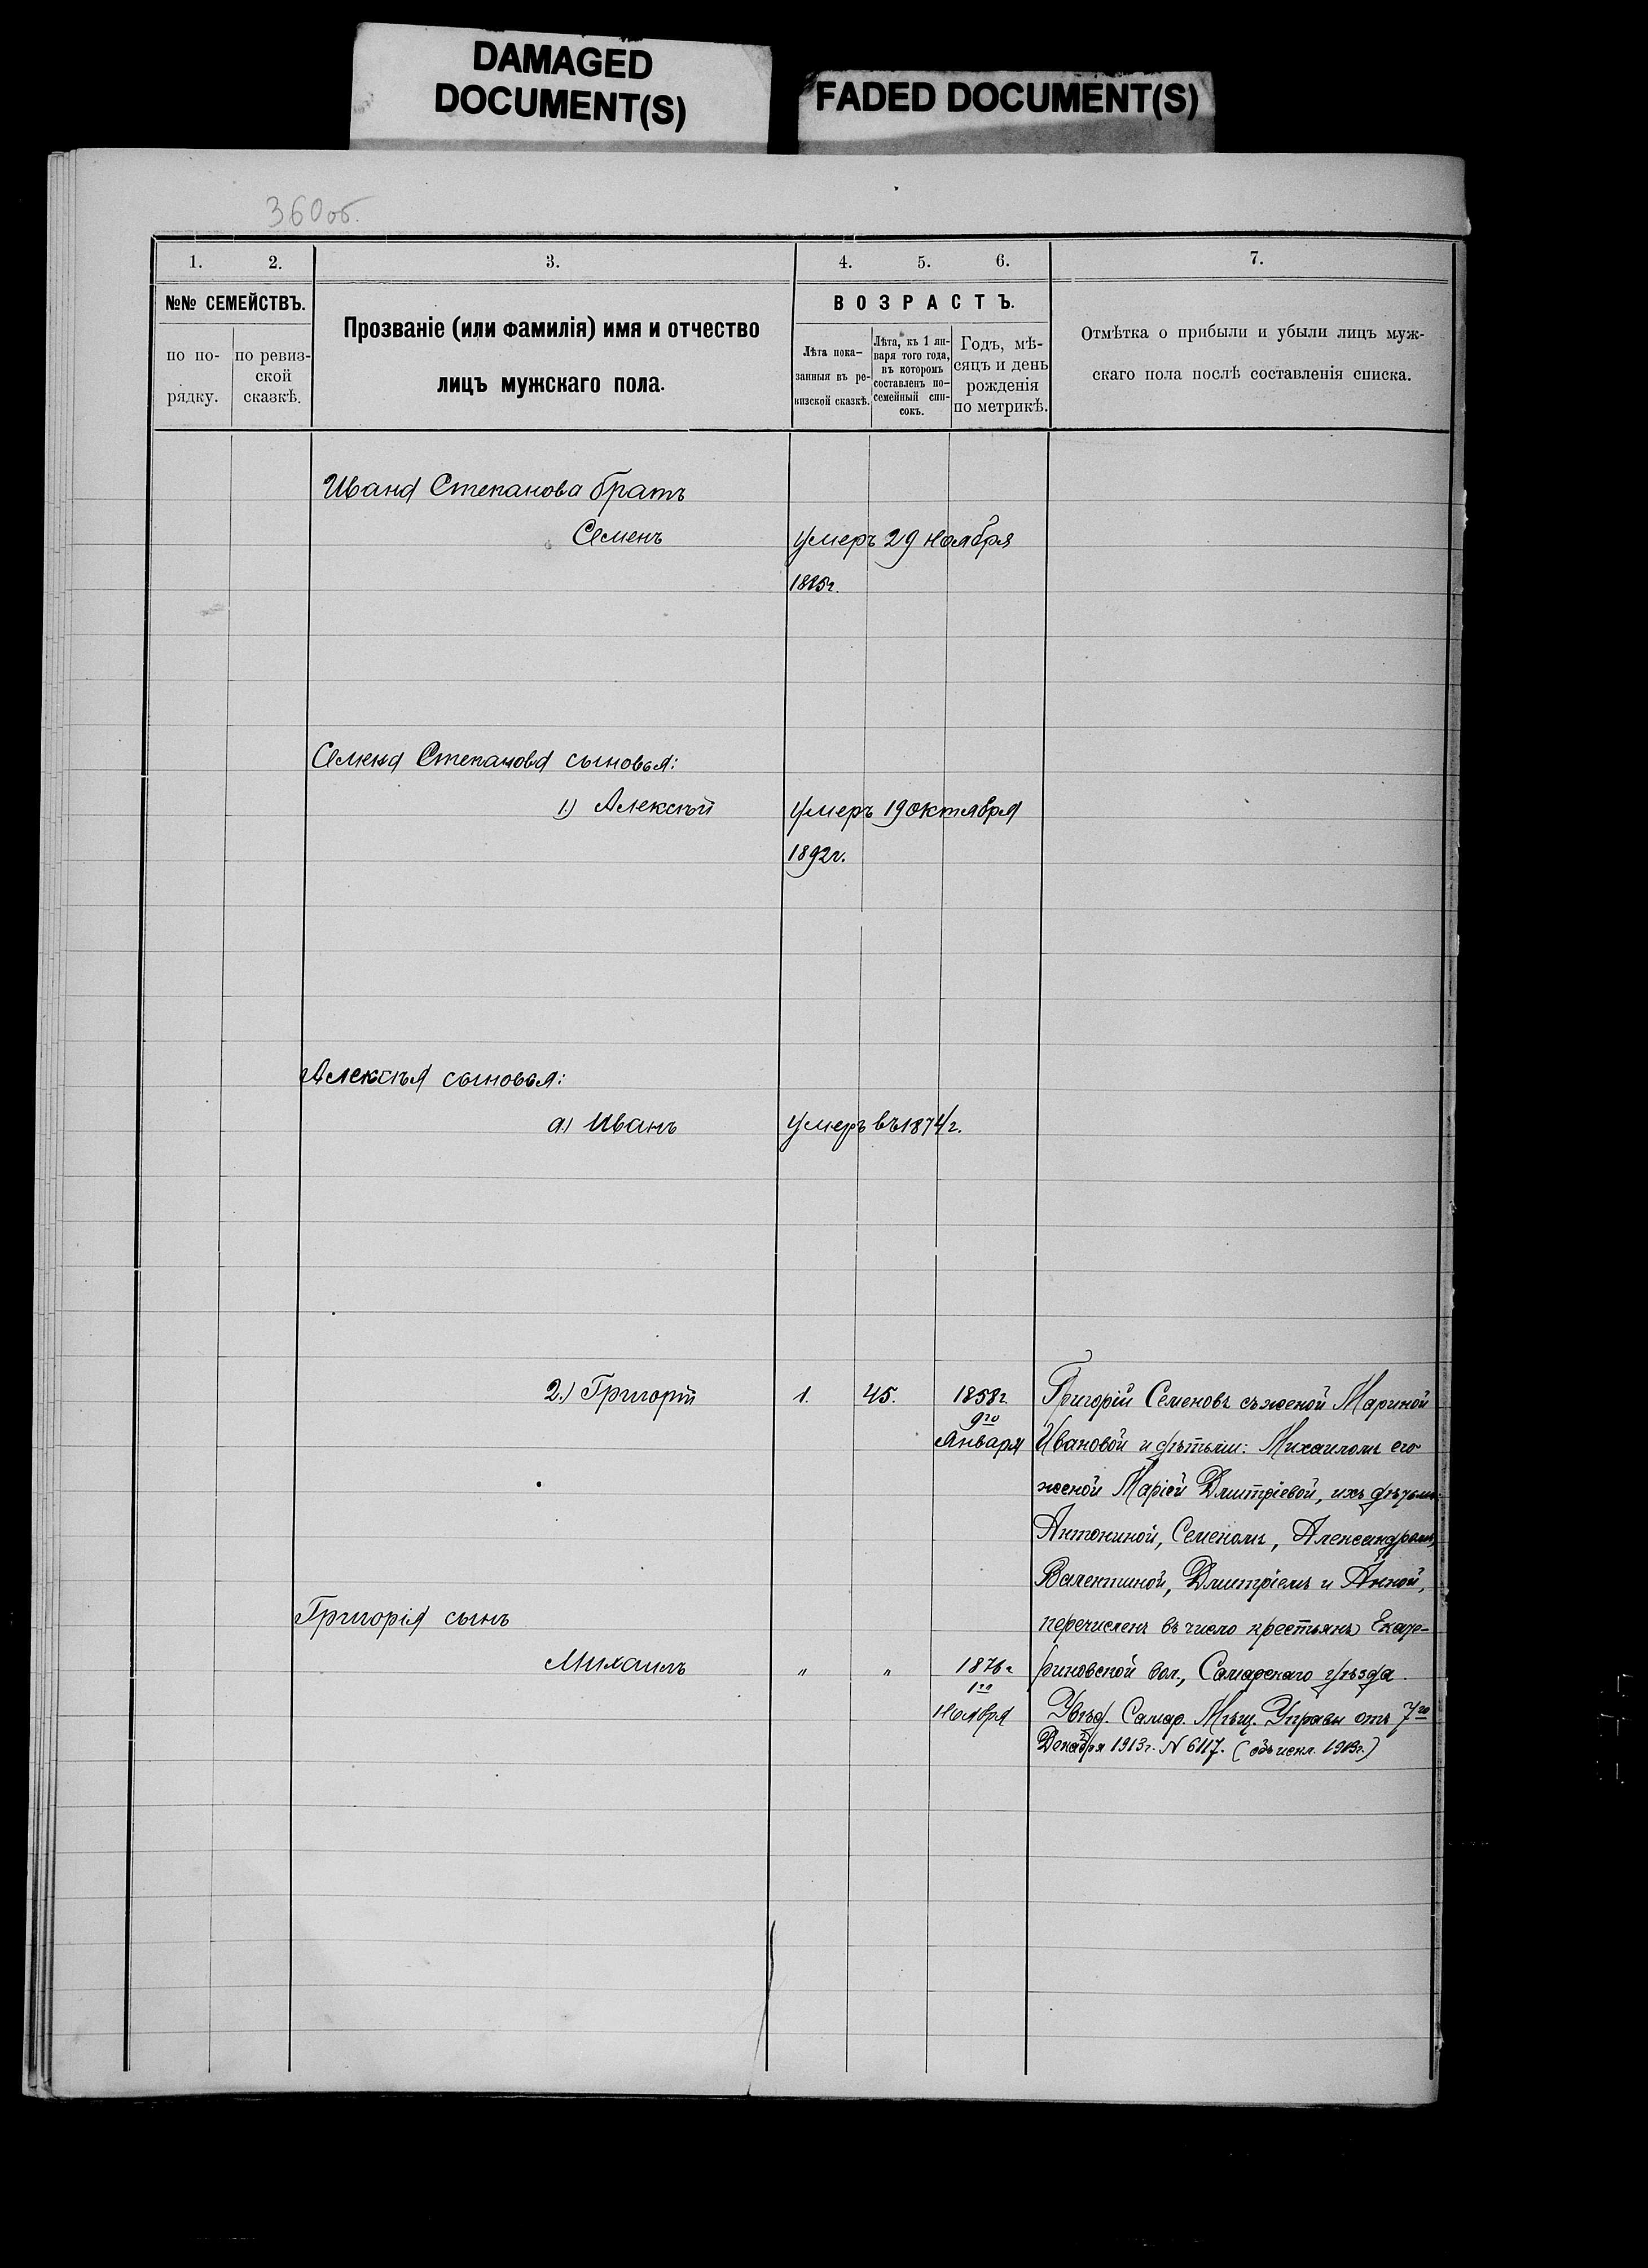 DAMAGED
DOCUMENT(S)
FADED DOCUMENT(S)
360об.
1. 2. 3. 4. 5. 6. 7.
№№ СЕМЕЙСТВЪ.
по по-
рядку.
по ревиз-
ской
сказкѣ.
Прозваніе (или фамилія) имя и отчество
лицъ мужскаго пола.
ВОЗРАСТЪ.
Лѣта пока-
занныя въ ре-
визской сказкѣ.
Лѣта, къ 1 ян-
варя того года,
въ которомъ
составленъ по-
семейный спи-
сокъ.
Годъ, мѣ-
сяцъ и день
рожденія
по метрикѣ.
Отмѣтка о прибыли и убыли лицъ муж-
скаго пола послѣ составленія списка.
Ивана Степанова братъ
Семенъ умеръ 29 ноября
Семена Степанова сыновья:
1.) Алексѣй умеръ 19 октября
1892г.
Алексѣя сыновья:
а.) Иванъ умеръ въ 1874 г.
2.) Григорій 1. 45. 1858г.
9го
Января
Григорій Семеновъ съ женой Мариной
Ивановой и дѣтьми: Михаиломъ его
женой Маріей Дмитріевой, ихъ дѣтьми
Антониной, Семеномъ, Александромъ,
Валентиной, Дмитріемъ и Анной,
перечисленъ въ число крестьянъ Екате-
риновской вол., Самарскаго уѣзда.
Увѣд. Самар. Мѣщ. Управы отъ 7го
Декабря 1913г. N 6117. ( 1913г.)
Григорія сынъ
Михаилъ " " 1876г
1го
Ноября